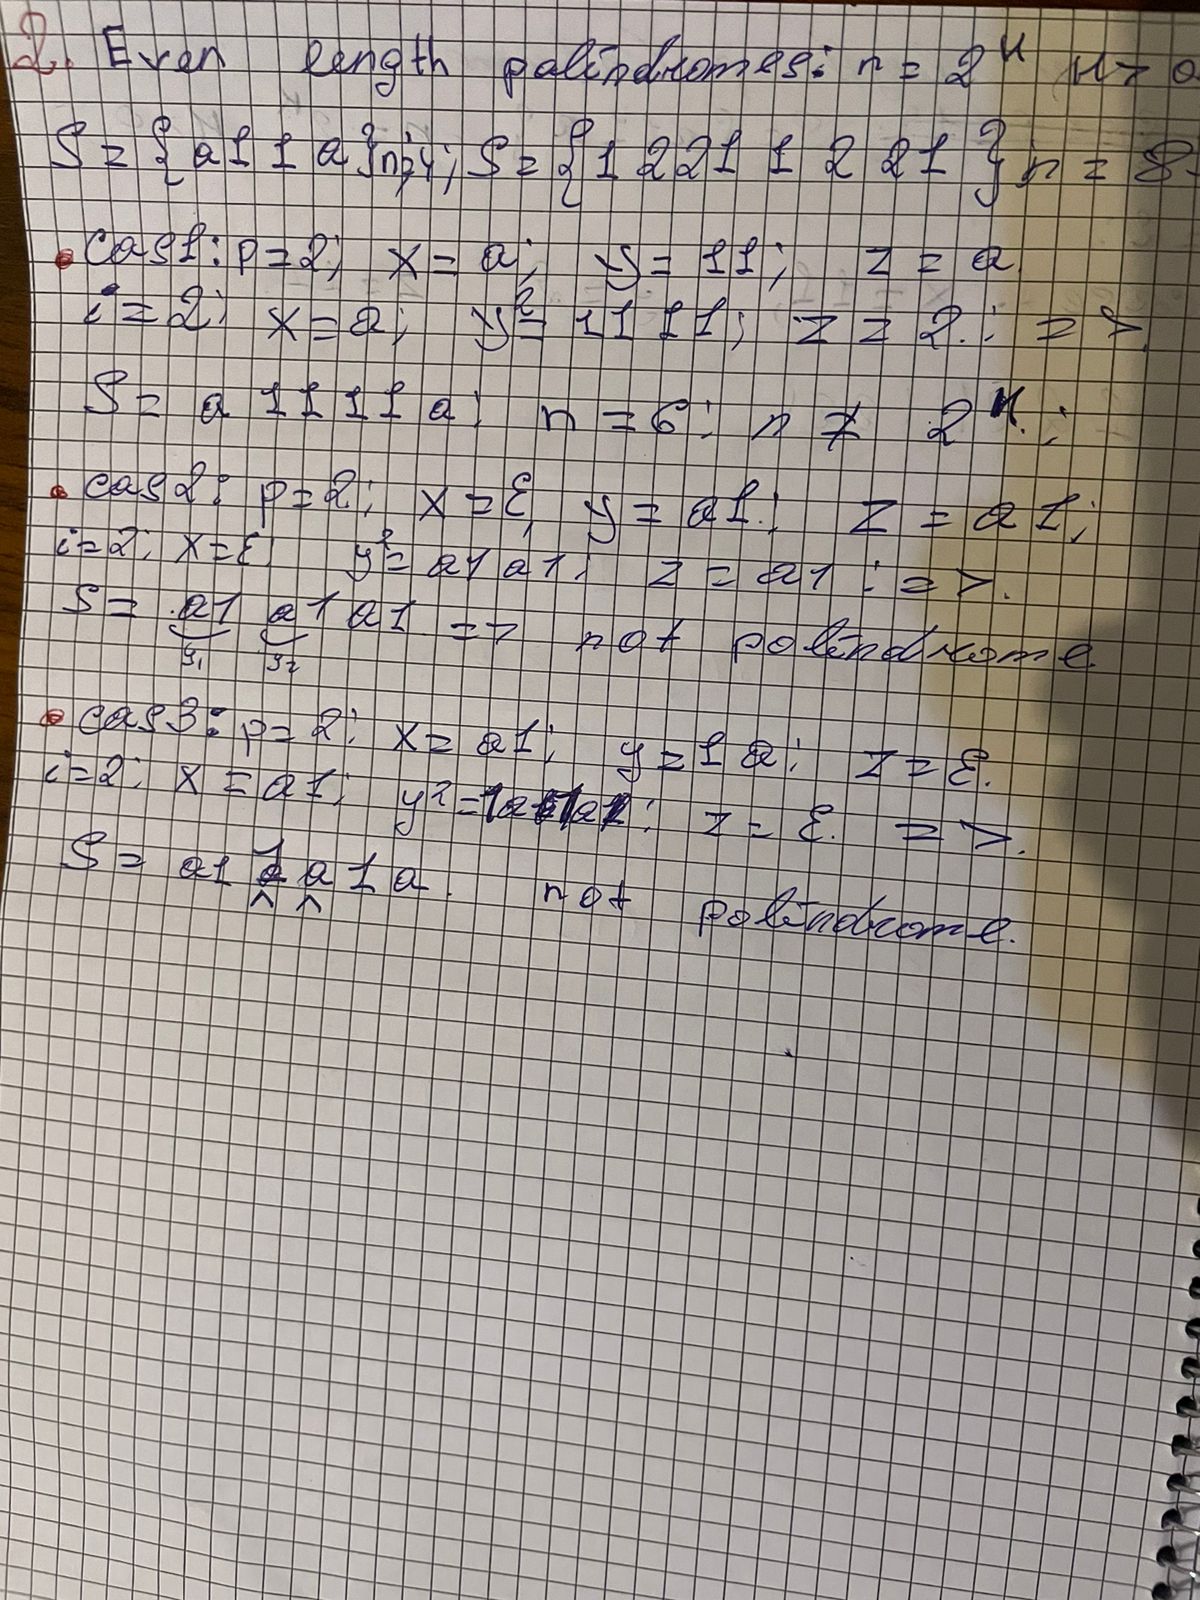 2. Even length polindromes: n = 2^k k > 0
S = {a 1 1 a} n=4; S = {1 2 2 1 1 2 2 1} n = 8
• cas1: p=2; x = a; y = 11; z = a
i = 2; x = a; y² = 1111; z = 2.; =>
S = a 1 1 1 1 a; n = 6; n ≠ 2^k.;
• cas2: p=2; x = ε, y = a1; z = a1;
i=2; x=ε; y² = a1 a1; z = a1; =>.
S = a1 a1 a1 => not polindrome
y₁ y₂
• cas3: p=2; x = a1; y = 1a; z = ε.
i=2; x = a1; y² = 1a 1a; z = ε. =>.
S = a1 1 a 1 a. not polindrome.